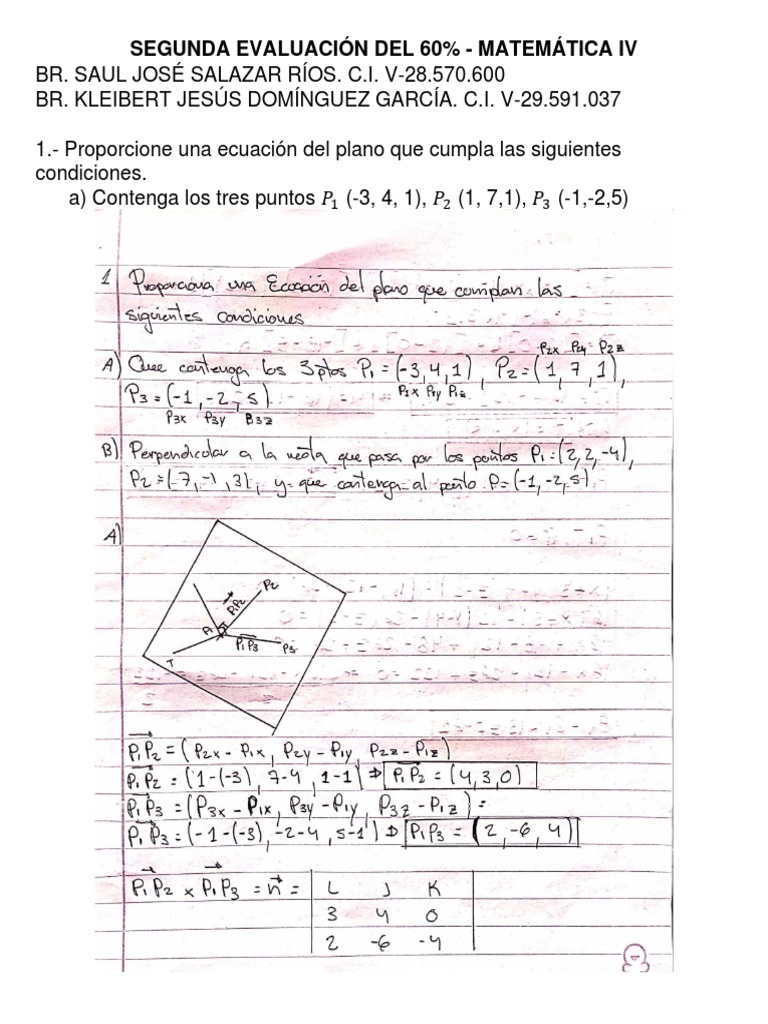 SEGUNDA EVALUACIÓN DEL 60% - MATEMÁTICA IV
BR. SAUL JOSÉ SALAZAR RÍOS. C.I. V-28.570.600
BR. KLEIBERT JESÚS DOMÍNGUEZ GARCÍA. C.I. V-29.591.037
1.- Proporcione una ecuación del plano que cumpla las siguientes
condiciones.
a) Contenga los tres puntos P₁ (-3, 4, 1), P₂ (1, 7,1), P₃ (-1,-2,5)
1 Proporciona una Ecuación del plano que cumplan las
siguientes condiciones
P2x P2y P2z
A) Que contenga los 3 ptos P1 = (-3, 4, 1), P2 = (1, 7, 1),
P1x P1y P1z
P3 = (-1, -2, 5)
P3x P3y P3z
B) Perpendicular a la recta que pasa por los puntos P1 = (2, 2, -4),
P2 = (-7, -1, 3), y que contenga al punto P = (-1, -2, 5).
A)
P2
P1P2
A
P1P3
P3
T
P1P2 = (P2x - P1x, P2y - P1y, P2z - P1z)
P1P2 = (1-(-3), 7-4, 1-1) ⇒ P1P2 = (4, 3, 0)
P1P3 = (P3x - P1x, P3y - P1y, P3z - P1z) =
P1P3 = (-1-(-3), -2-4, 5-1) ⇒ P1P3 = (2, -6, 4)
P1P2 x P1P3 = n = L J K
3 4 0
2 -6 -4